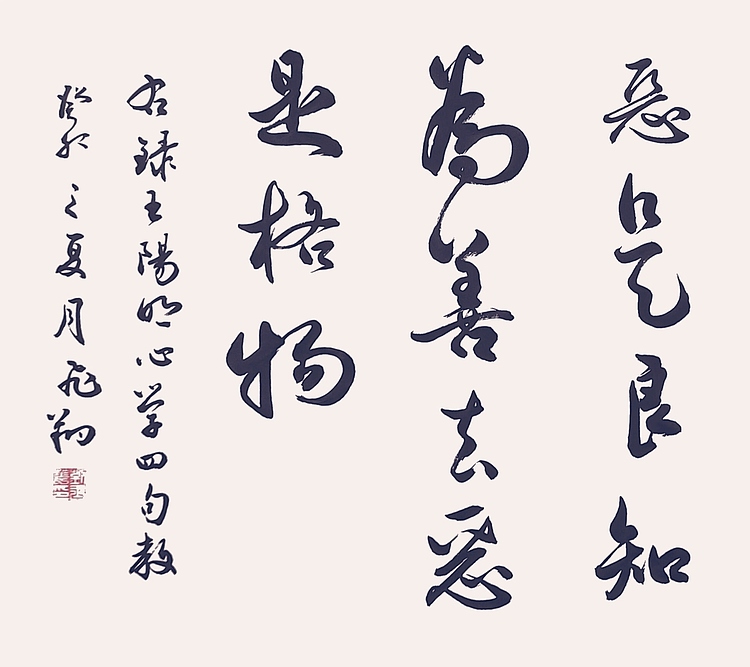 恶是良知
為善去惡
是格物
右録王陽明心学四句教
癸卯之夏月飛翔